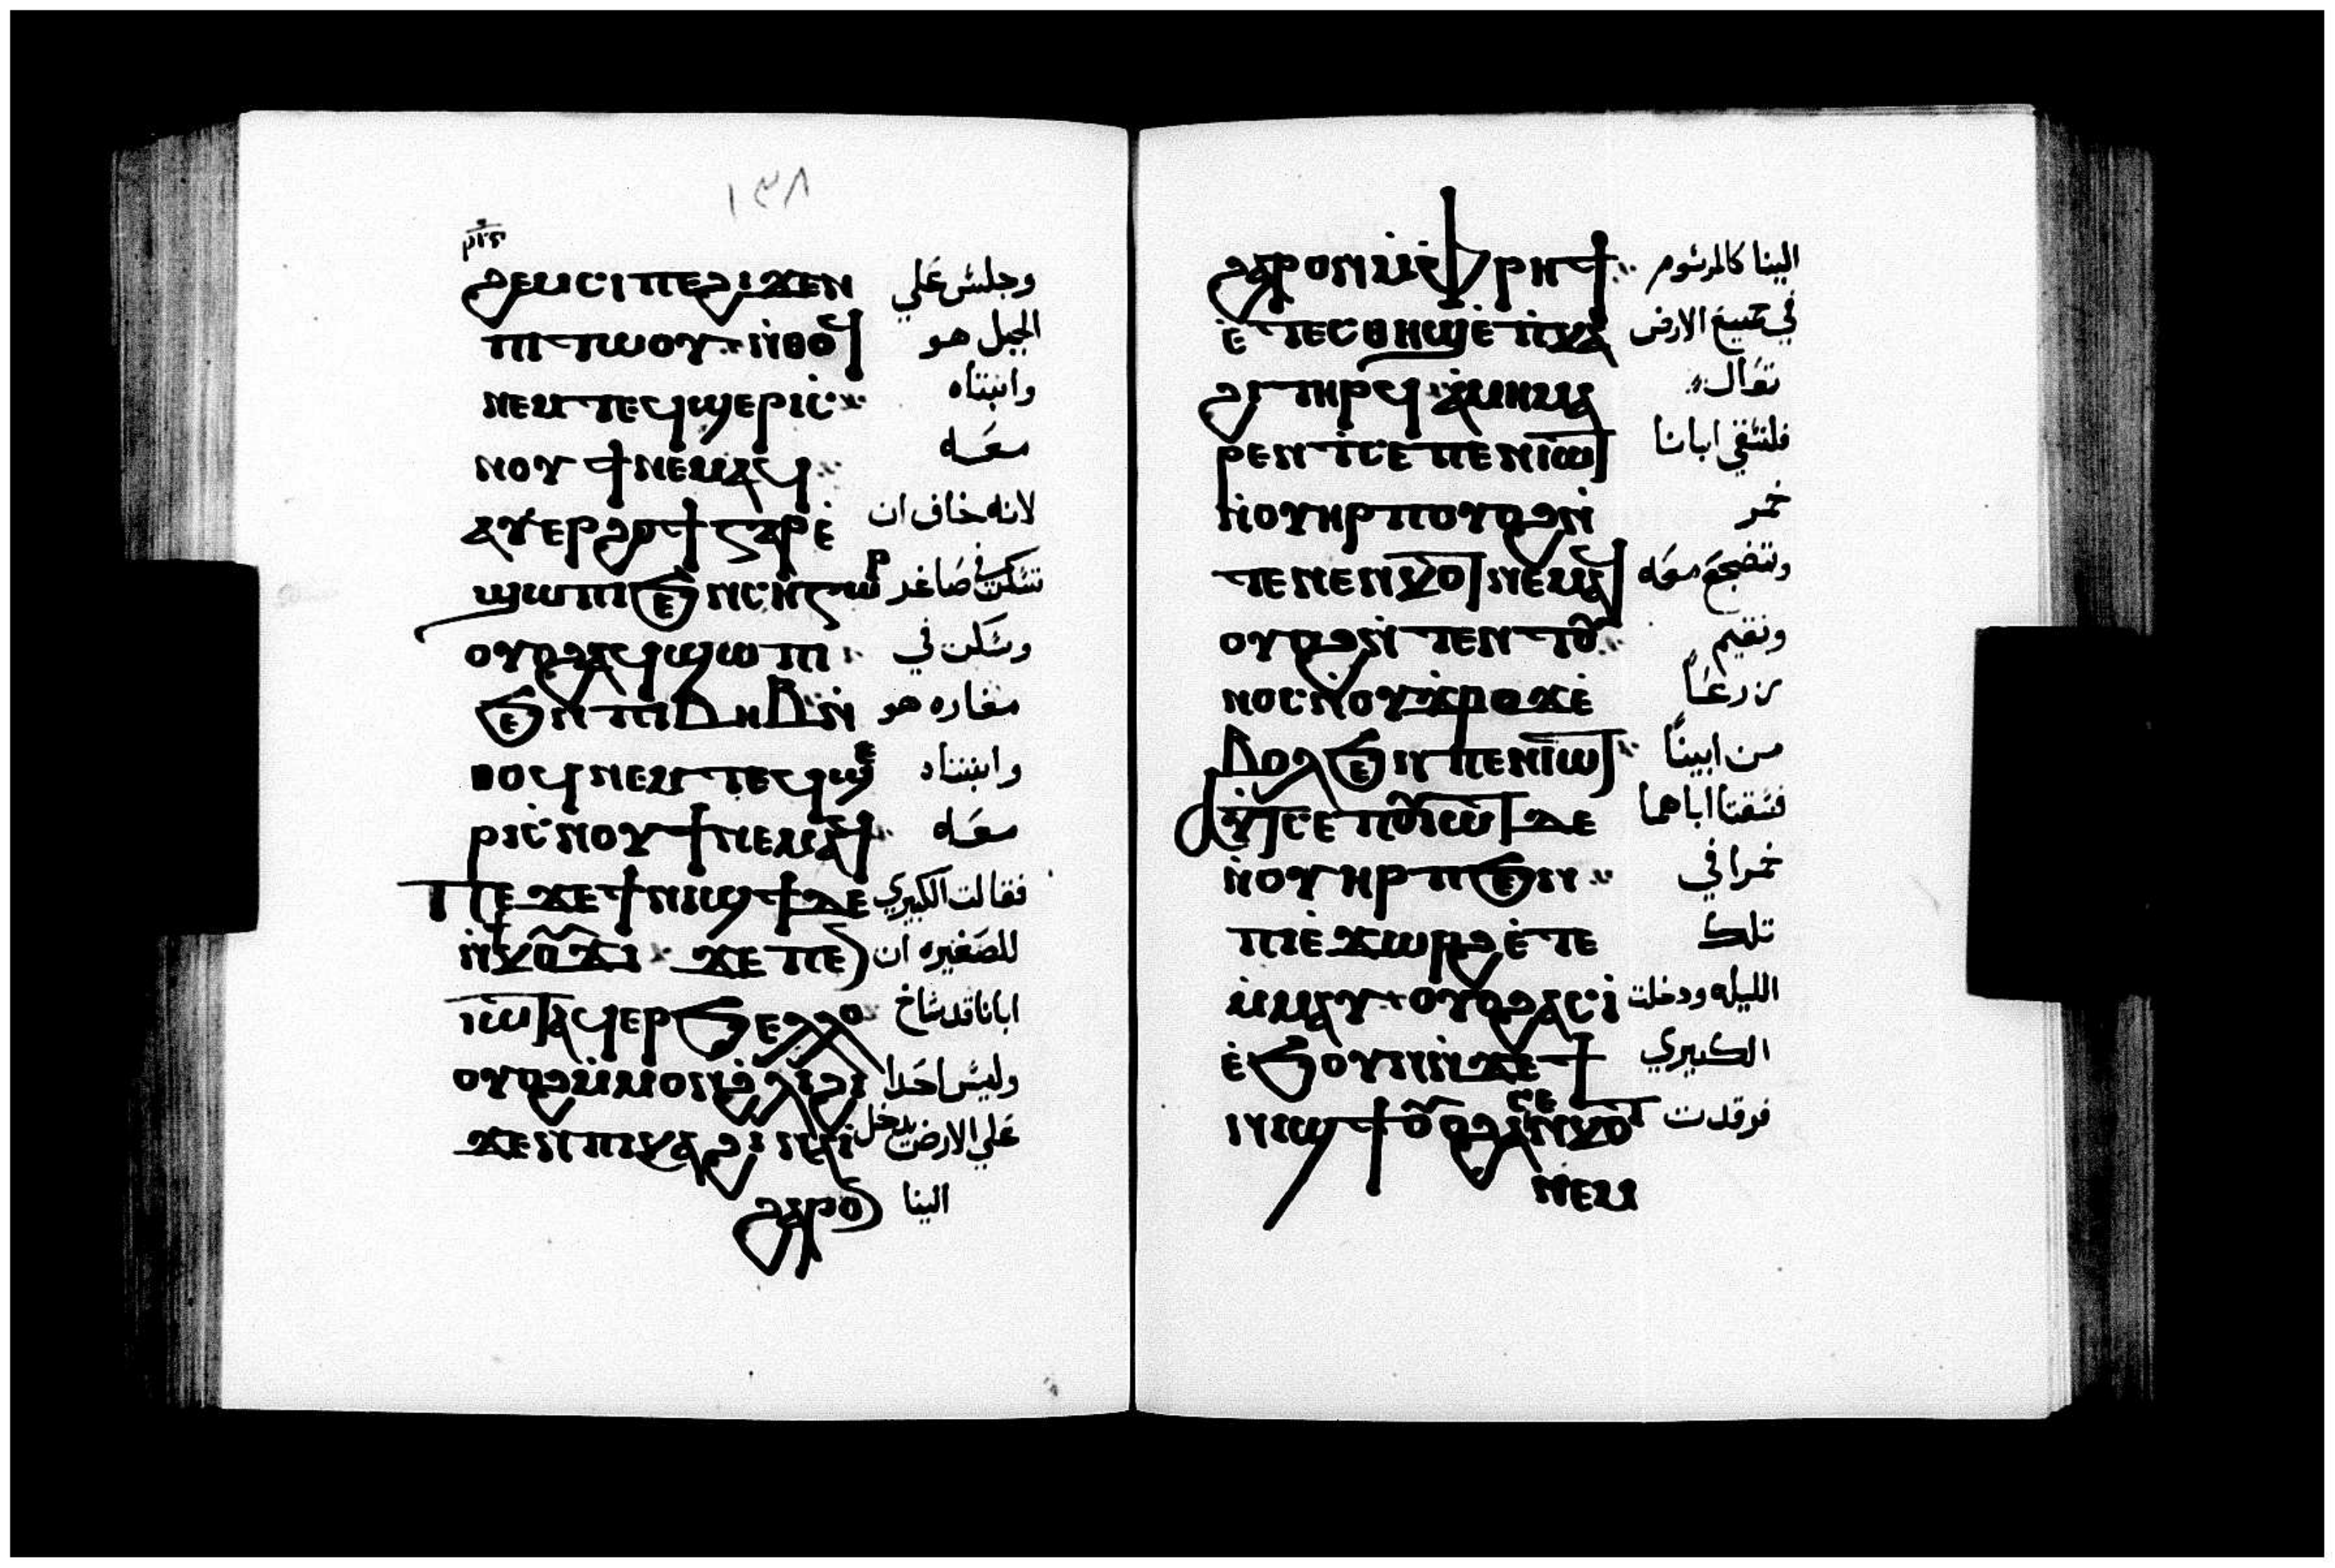 ١٢٨
ⲣⲓⲋ
ϩⲉⲙⲥⲓ ⲡⲉ ϩⲓϫⲉⲛ وجلس علي
ⲡⲓⲧⲱⲟⲩ ⲛ̇ⲑⲟϥ الجبل هو
ⲛⲉⲙ ⲧⲉϥϣⲉⲣⲓ ⲥ̇ وابنتاه
ⲛⲟⲩϯ ⲛⲉⲙⲁϥ معه
ⲁϥⲉⲣϩⲟϯ ⲅⲁⲣ ⲉ̇ لانه خاف ان
ϣⲱⲡⲓ ϧⲉⲛ ⲥⲏⲅⲱⲣ تسكن في صاغر
ⲟⲩⲟϩ ⲁϥϣⲱⲡⲓ وسكن في
ϧⲉⲛ ⲡⲓⲃⲏⲃ ⲛ̇ مغاره هو
ⲑⲟϥ ⲛⲉⲙ ⲧⲉϥϣⲉ وابنتاه
ⲣⲓ ⲥ̇ⲛⲟⲩϯ ⲛⲉⲙⲁϥ معه
ⲡⲉϫⲉ ϯⲛⲓϣϯ ⲇⲉ فقالت الكبيري
ⲛ̇ⲕⲟⲩϫⲓ ϫⲉ ⲡⲉⲛ للصغيره ان
ⲓⲱⲧ ⲁϥⲉⲣϧⲉⲗⲗⲟ ابانا قد شاخ
ⲟⲩⲟϩ ⲙ̇ⲙⲟⲛ ϩ̇ⲗⲓ ϩⲓ وليس احدا
ϫⲉⲛ ⲡⲓⲕⲁϩⲓ ⲛⲁⲓ̇ علي الارض يدخل
ϩⲁⲣⲟⲛ الينا
ϩⲁⲣⲟⲛ ⲙ̇ⲫⲣⲏϯ الينا كالمرسوم
ⲉ̇ⲧⲉⲥⲑⲏϣ ⲉ̇ⲡⲓⲕⲁ في جميع الارض
ϩⲓ ⲧⲏⲣϥ ⲁ̇ⲙⲏ ⲙⲁ تعال
ⲣⲉⲛⲧⲥⲉ ⲡⲉⲛⲓⲱⲧ فلنسقي ابانا
ⲛ̇ⲟⲩⲏⲣⲡ ⲟⲩⲟϩ ⲛ̇ خمر
ⲧⲉⲛⲉⲛⲕⲟⲧ ⲛⲉⲙⲁϥ ونضجع معه
ⲟⲩⲟϩ ⲛ̇ⲧⲉⲛⲧⲟⲩ ونقيم
ⲛⲟⲥ ⲛ̇ⲟⲩϫ̇ⲣⲟϫ ⲉ̇ زرعاً
ⲃⲟⲗ ϧⲉⲛ ⲡⲉⲛⲓⲱⲧ من ابينا
ⲁⲩⲧⲥⲉ ⲡⲟⲩⲓⲱⲧ ⲇⲉ فسقتا اباهما
ⲛ̇ⲟⲩⲏⲣⲡ ϧⲉⲛ خمرا في
ⲡⲓⲉ̇ϫⲱⲣϩ ⲉ̇ⲧⲉ تلك
ⲙ̇ⲙⲁⲩ ⲟⲩⲟϩ ⲁⲥⲓ̇ الليله ودخلت
ⲉ̇ϧⲟⲩⲛ ⲛ̇ϫⲉ ϯ الكبيري
ⲛⲓϣϯ ⲟⲩⲟϩ ⲁⲥⲉⲛⲕⲟⲧ فرقدت
ⲛⲉⲙ